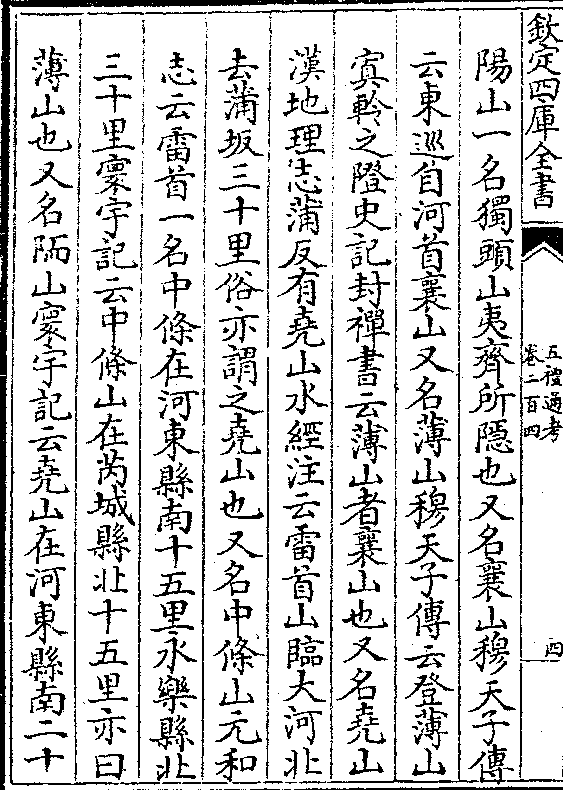 欽定四庫全書
五禮通考
卷二百四
四
陽山一名獨頭山夷齊所隱也又名襄山穆天子傳
云東巡自河首襄山又名薄山穆天子傳云登薄山
寘軨之隥史記封禪書云薄山者襄山也又名堯山
漢地理志蒲反有堯山水經注云雷首山臨大河北
去蒲坂三十里俗亦謂之堯山也又名中條山元和
志云雷首一名中條在河東縣南十五里永樂縣北
三十里寰宇記云中條山在芮城縣北十五里亦曰
薄山也又名陑山寰宇記云堯山在河東縣南二十